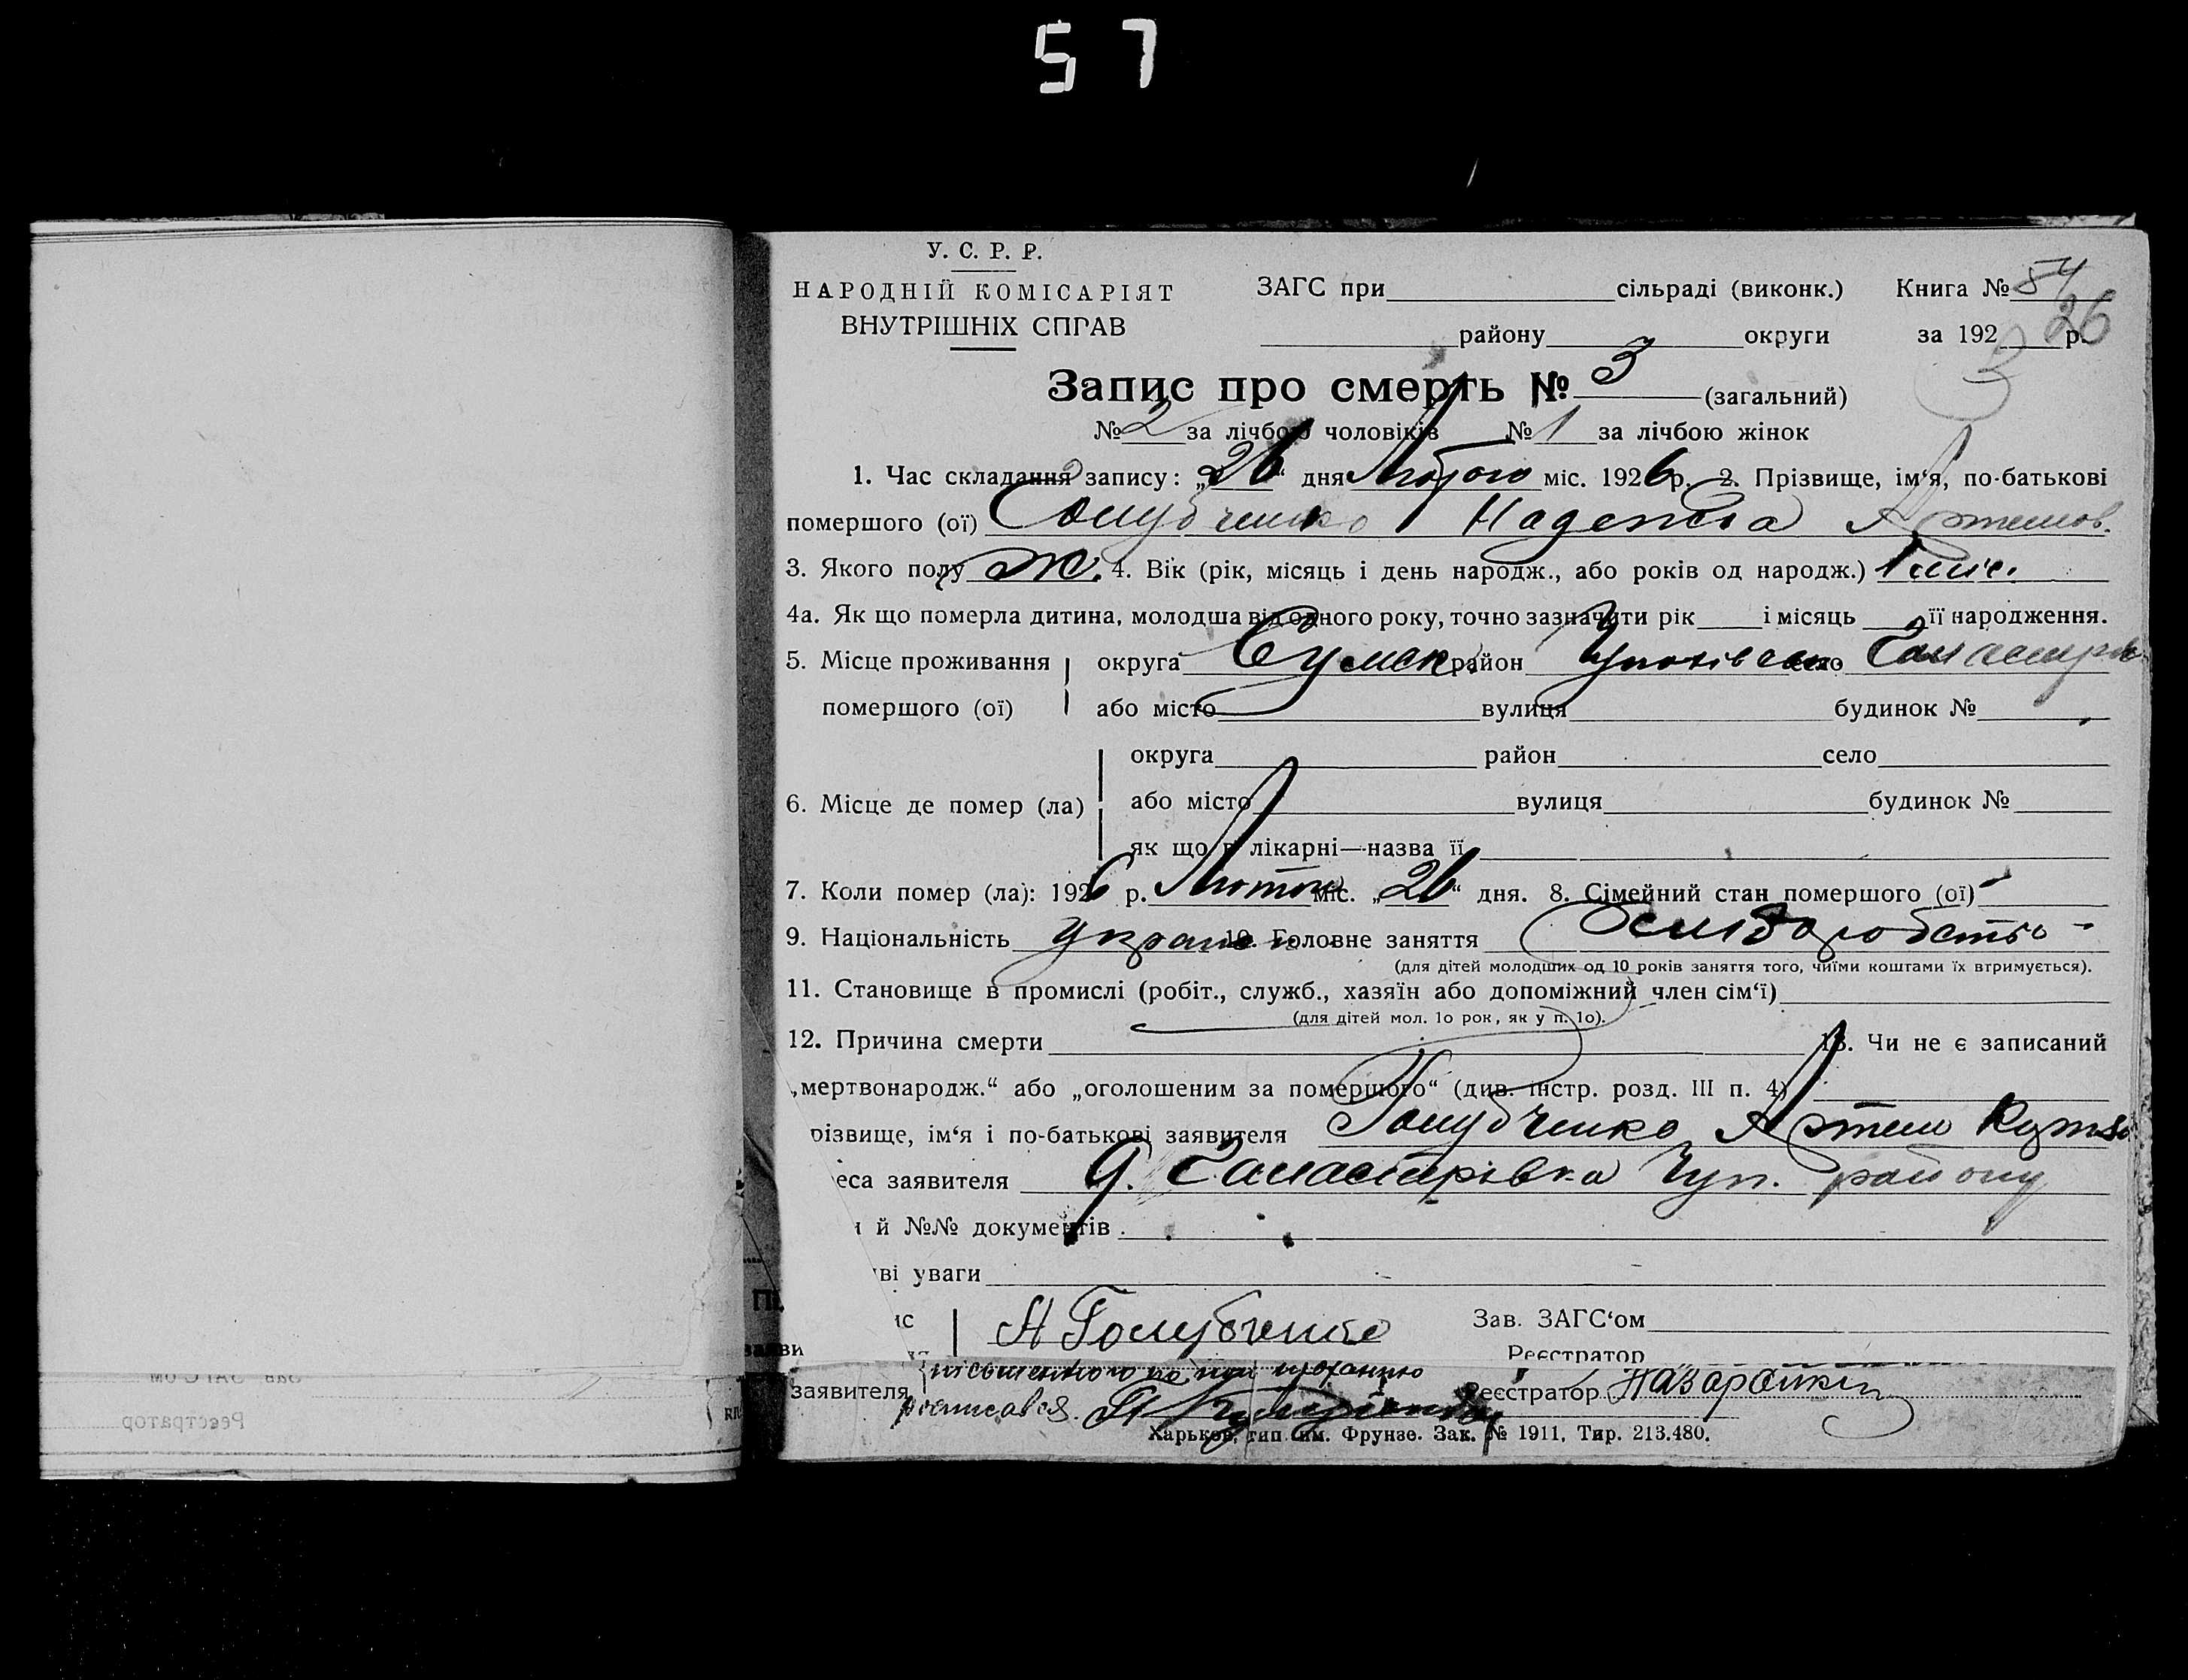 57
У. С. Р. Р.
НАРОДНІЙ КОМІСАРІЯТ
ВНУТРІШНІХ СПРАВ
ЗАГС при сільраді (виконк.) Книга № 54
району округи за 192 26 р.
3
Запис про смерть № 3 (загальний)
№ 2 за лічбою чоловіків № 1 за лічбою жінок
1. Час складання запису: „26“ дня Лютого міс. 1926 р. 2. Прізвище, ім‘я, по-батькові
помершого (ої) Голубченко Надежда Артемов.
3. Якого полу ж. 4. Вік (рік, місяць і день народж., або років од народж.) 1 міс.
4а. Як що померла дитина, молодша від одного року, точно зазначити рік і місяць її народження.
5. Місце проживання округа Сумск. район село
помершого (ої) або місто вулиця будинок №
округа район село
6. Місце де помер (ла) або місто вулиця будинок №
як що в лікарні—назва її
7. Коли помер (ла): 1926 р. Лютого міс. „26“ дня. 8. Сімейний стан помершого (ої) -
9. Національність украін 10. Головне заняття
(для дітей молодших од 10 років заняття того, чиїми коштами їх втримується).
11. Становище в промислі (робіт., служб., хазяїн або допоміжний член сім‘ї)
(для дітей мол. 1о рок, як у п. 1о).
12. Причина смерти 13. Чи не є записаний
„мертвонародж.“ або „оголошеним за помершого“ (див. інстр. розд. III п. 4)
різвище, ім‘я і по-батькові заявителя Голубченко Артем
еса заявителя району
й №№ документів
ві уваги
ис А Голубченко Зав. ЗАГС‘ом
Реєстратор
заявителя Реєстратор
Харьков, тип. им. Фрунзе. Зак. № 1911. Тир. 213.480.